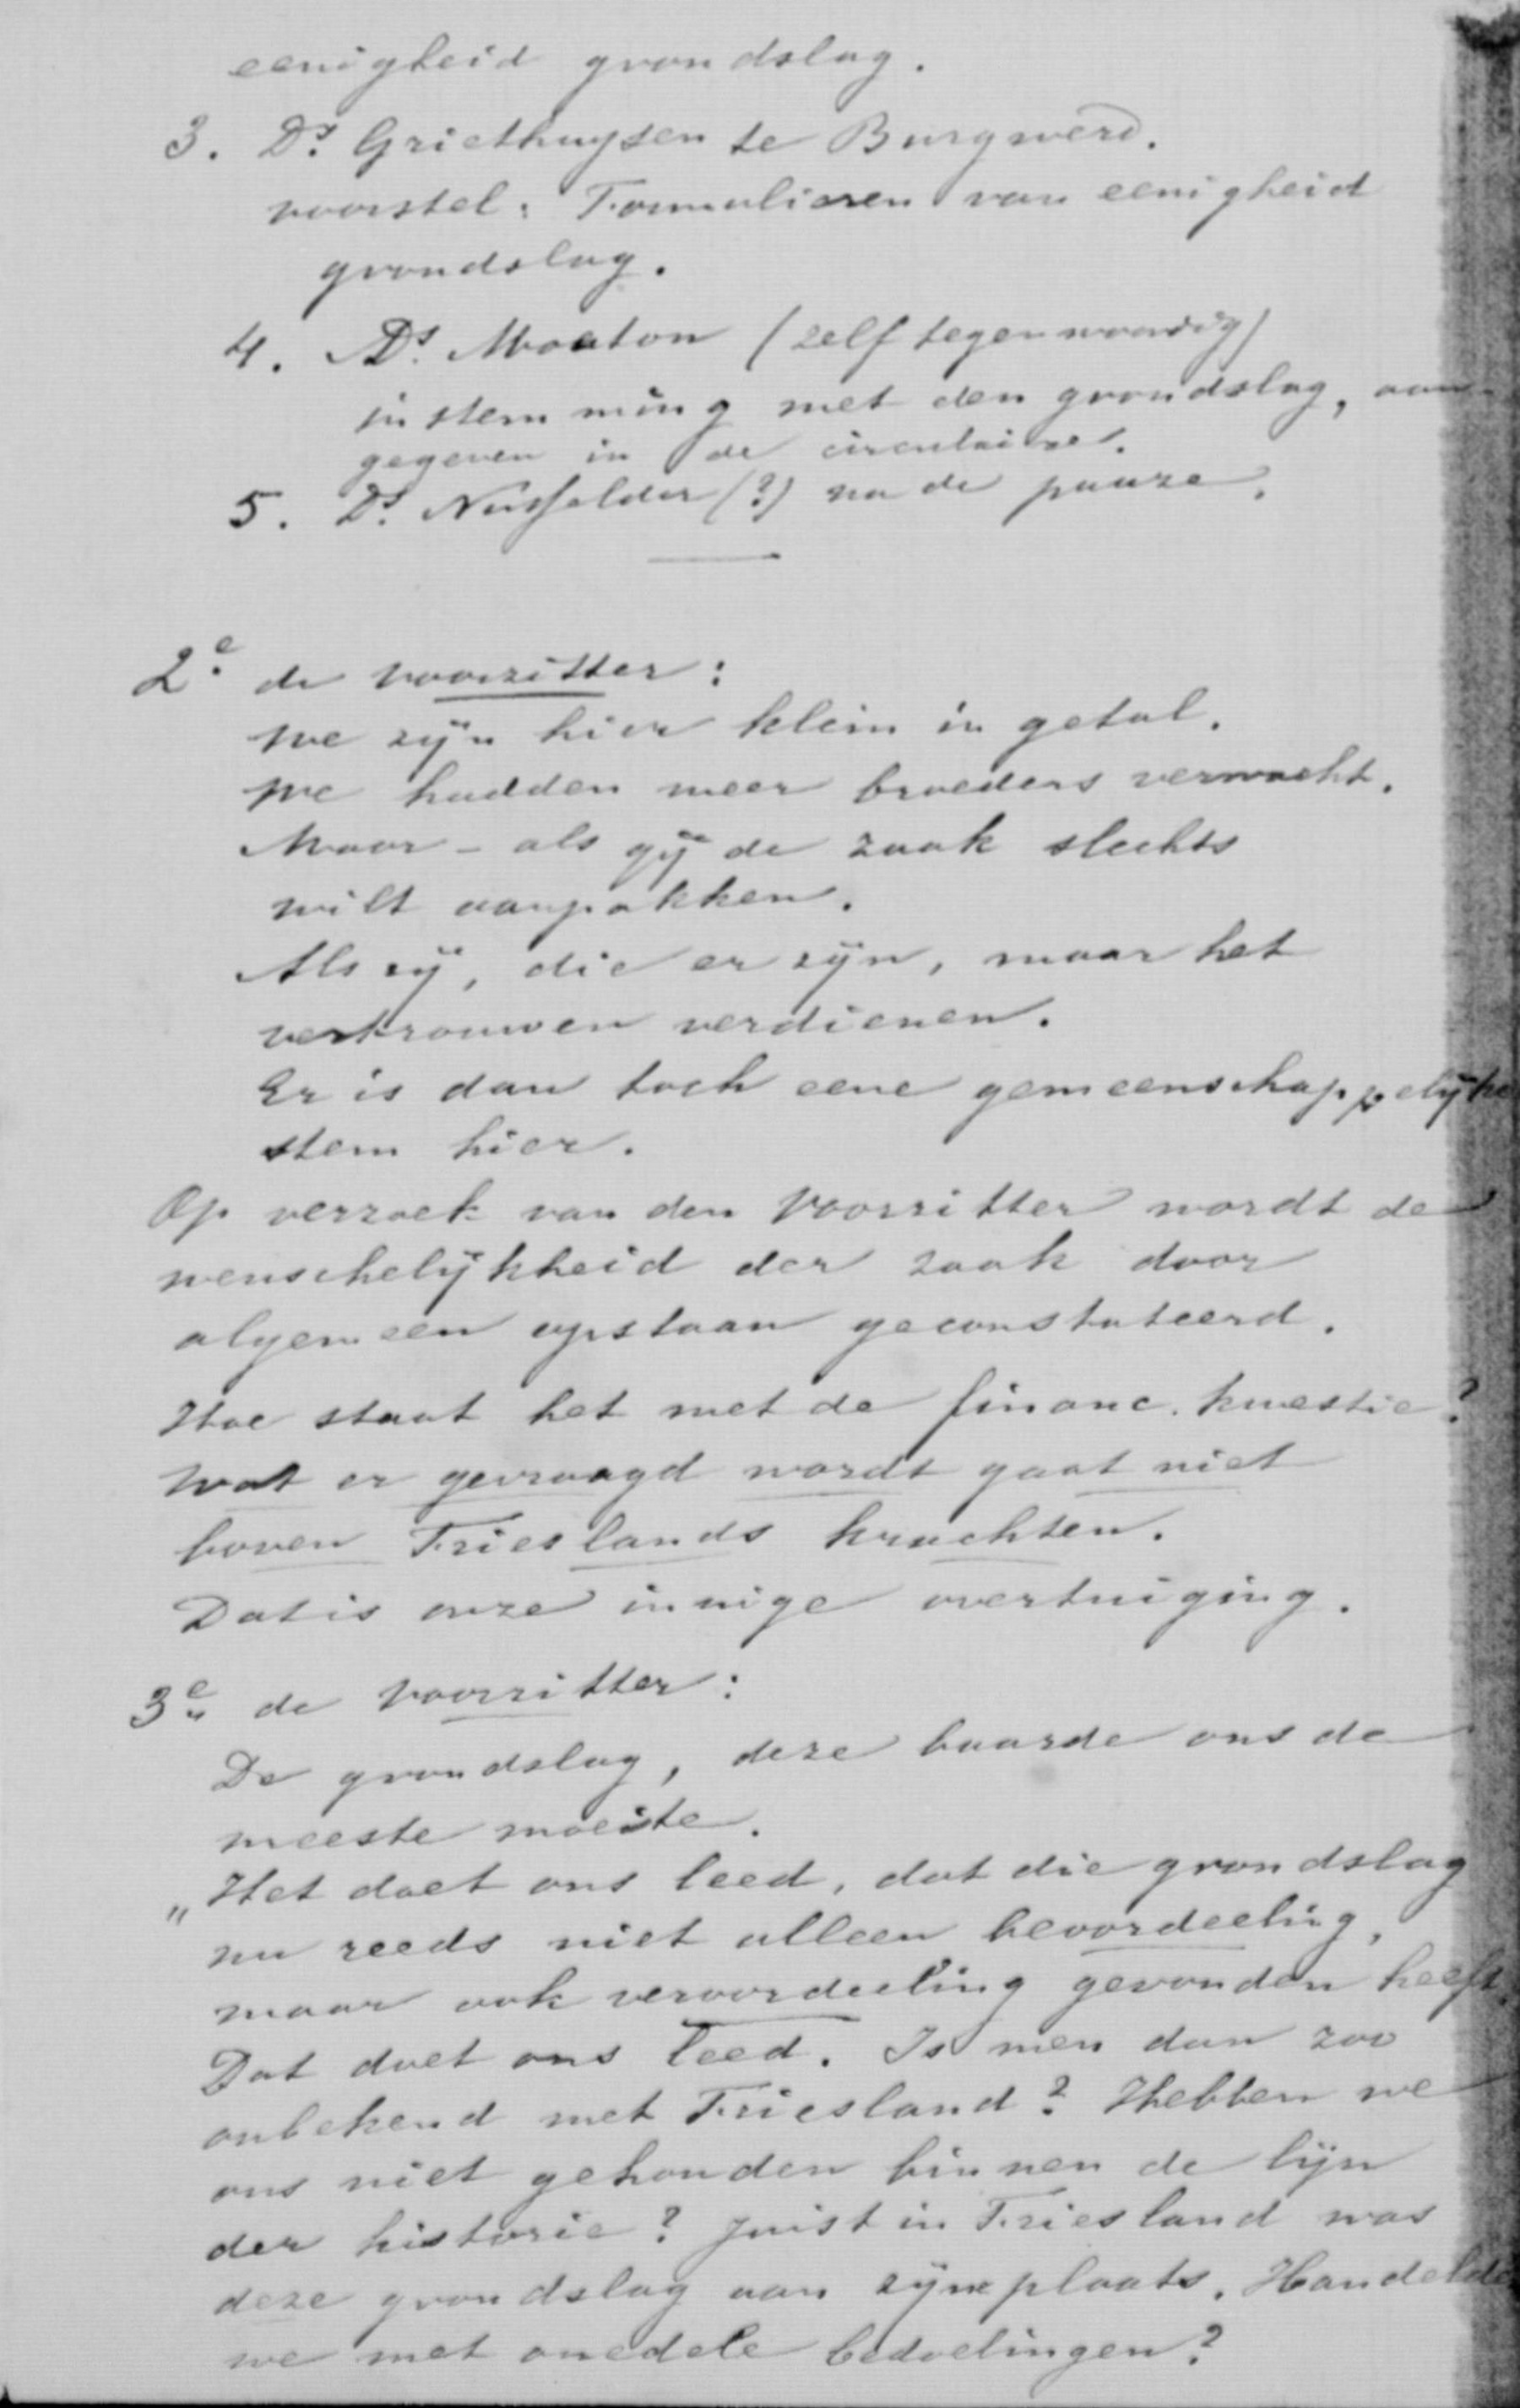 eenigheid grondslag.
3. Ds. Griethuysen te Burgwerd.
voorstel: Formulieren van eenigheid
grondslag.
4. Ds. Moaton (zelf tegenwoordig)
instemming met den grondslag, aan-
gegeven in de circulaire.
5. Ds. (?) na de pauze.
2e. de voorzitter:
We zijn hier klein in getal.
We hadden meer broeders verwacht.
Maar - als gij de zaak slechts
wilt aanpakken.
Als zij, die er zijn, maar het
vertrouwen verdienen.
Er is dan toch eene gemeenschappelijke
stem hier.
Op verzoek van den Voorzitter wordt de
wenschelijkheid der zaak door
algemeen opstaan geconstateerd.
Hoe staat het met de financ. kwestie?
Wat er gevraagd wordt gaat niet
boven Frieslands krachten.
Dat is onze innige overtuiging.
3e. de Voorzitter:
De grondslag, deze baarde ons de
meeste moeite.
„Het doet ons leed, dat die grondslag
nu reeds niet alleen beoordeeling,
maar ook veroordeeling gevonden heeft.
Dat doet ons leed. Is men dan zoo
onbekend met Friesland? Hebben we
ons niet gehouden binnen de lijn
der historie? Juist in Friesland was
deze grondslag aan zijne plaats. Handelde
we met onedele bedoelingen?